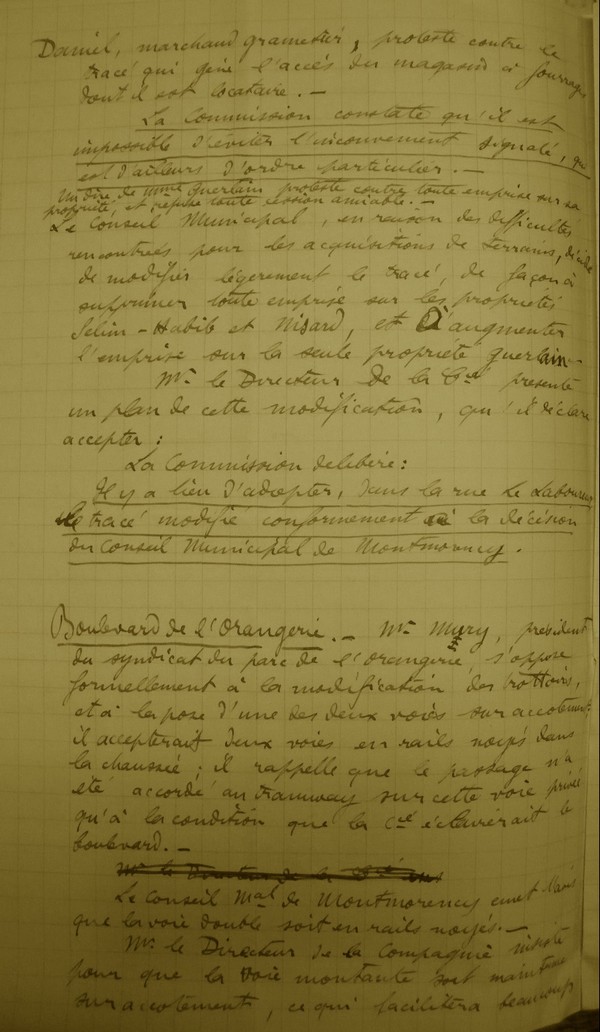 Daniel, marchand grainetier, proteste contre le
tracé qui gêne l'accès du magasin à fourrages
dont il est locataire. —
La Commission constate qu'il est
impossible d'éviter l'inconvénient signalé, qui
est d'ailleurs d'ordre particulier. —
Un dire de Mme Querlain proteste contre toute emprise sur sa
propriété, et refuse toute cession amiable. —
Le Conseil Municipal, en raison des difficultés
rencontrées pour les acquisitions de terrains, décide
de modifier légèrement le tracé, de façon à
supprimer toute emprise sur les propriétés
Selim-Habib et Nisard, et à augmenter
l'emprise sur la seule propriété Querlain —
Mr. le Directeur de la Cie présente
un plan de cette modification, qu'il déclare
accepter :
La Commission délibère :
Il y a lieu d'adopter, dans la rue Le Laboureur
le tracé modifié conformément à la décision
du Conseil Municipal de Montmorency.
Boulevard de l'Orangerie. — Mr. Mury, président
du syndicat du parc de l'orangerie, s'oppose
formellement à la modification des trottoirs,
et à la pose d'une des deux voies sur accotement
il accepterait deux voies en rails noyés dans
la chaussée ; il rappelle que le passage n'a
été accordé au tramway sur cette voie privée
qu'à la condition que la Cie éclairerait le
boulevard. —
Mr le Directeur de la Cie
Le Conseil Mal de Montmorency émet l'avis
que la voie double soit en rails noyés. —
Mr. le Directeur de la Compagnie insiste
pour que la voie montante soit maintenue
sur accotement, ce qui facilitera beaucoup